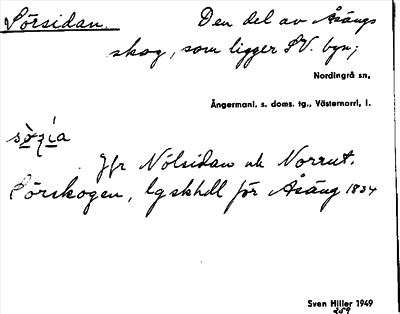 Sörsidan. Den del av Åsängs
skog, som ligger S V. byn;
Nordingrå sn,
Ångermanl. s. doms. tg., Västernorrl, l.
Jfr Nolsidan ock Norrut.
Sörskogen, lgskhdl för Åsäng 1834
Sven Hiller 1949
259